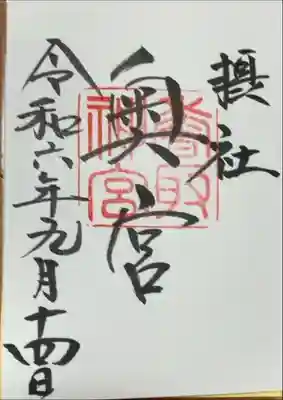 摂社
奥宮
香取
神宮
令和六年九月十四日